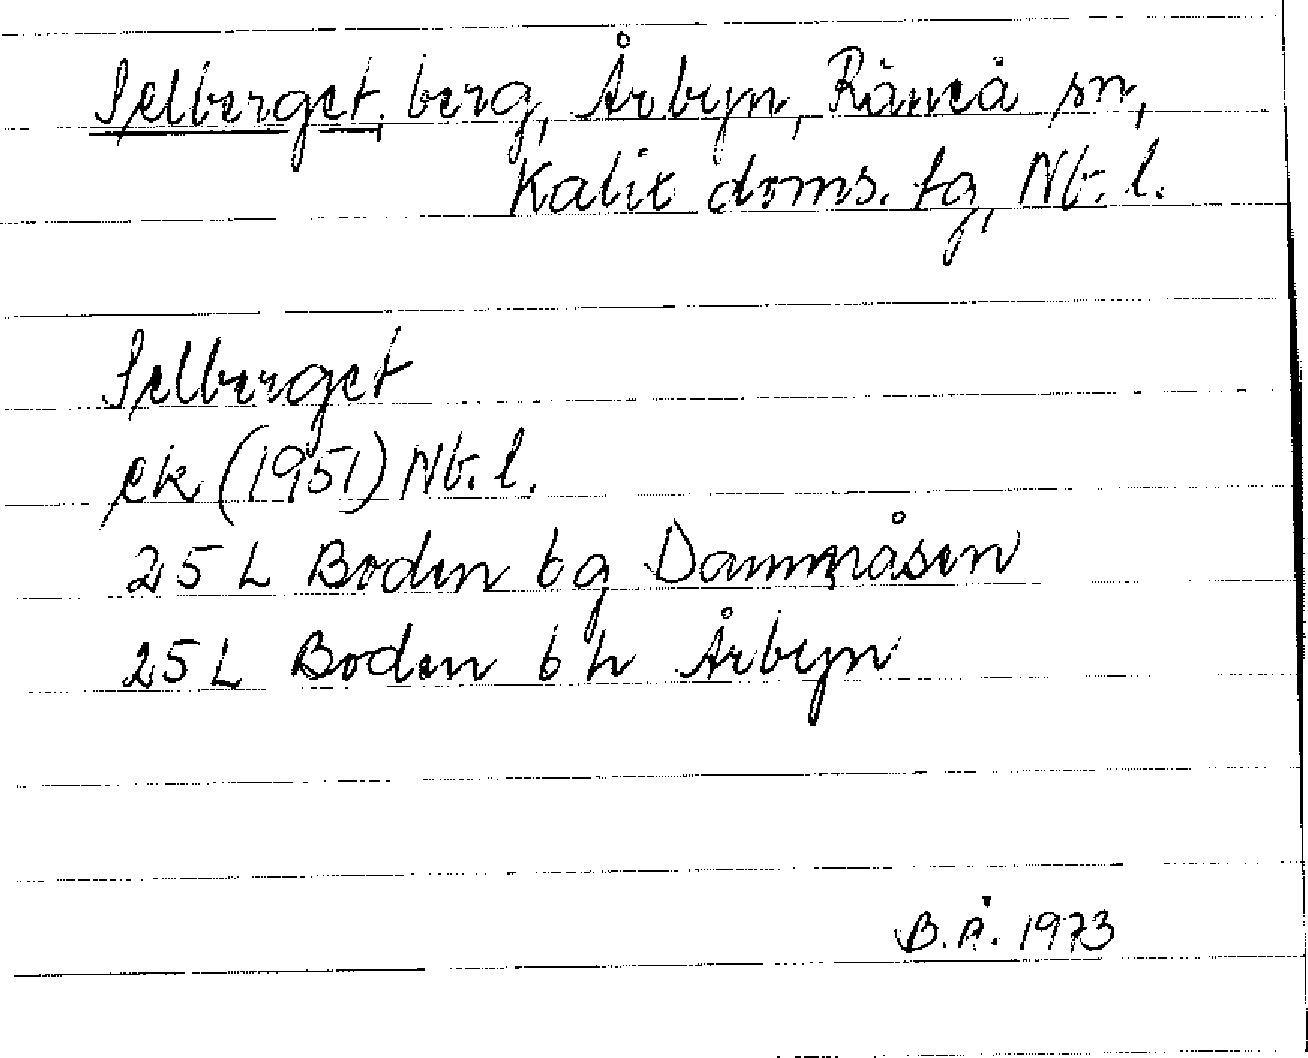 Selberget, berg, Årbyn, Råneå sn,
Kalix doms. tg, Nb. l.
Selberget
ek (1951) Nb. l.
25 L Boden 6 g Dammåsen
25 L Boden 6 h Årbyn
B.Å. 1973